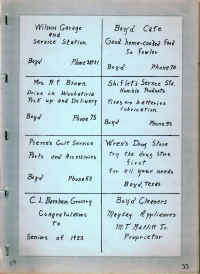 Wilson Garage
and
Service Station
Boyd Phone
Boyd Cafe
Good home-cooked food
So Fowler
Boyd Phone 70
Mrs. A. F. Brown
Drive in Washateria
Pick up and Delivery
Boyd Phone 75
Shiflet's Service Sta.
Humble Products
Tires and batteries
Lubrication
Boyd Phone 95
Pierce's Gulf Service
Parts and Accessories
Boyd Phone 68
Wren's Drug Store
try the drug store
first
for all your needs
Boyd, Texas
C. L. Boreham Grocery
Congratulations
to
Seniors of 1953
Boyd Cleaners
Maytag Appliances
M.T. Moffitt Jr.
Proprietor
33